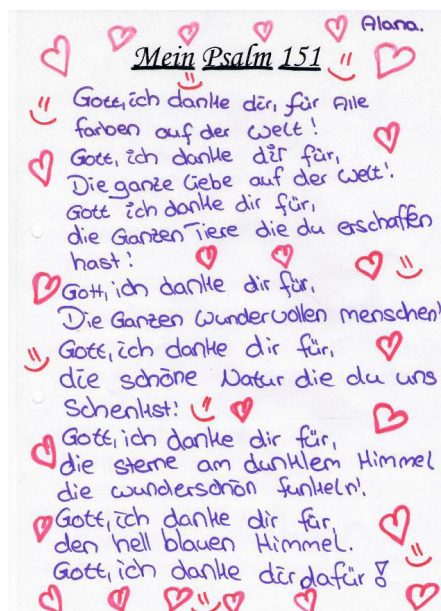 Alana.
Mein Psalm 151
Gott, ich danke dir, für Alle
farben auf der Welt!
Gott, ich danke dir für,
Die ganze Liebe auf der Welt!
Gott ich danke dir für,
die Ganzen Tiere die du erschaffen
hast!
Gott, ich danke dir für,
Die Ganzen wundervollen menschen!
Gott, ich danke dir für,
die schöne Natur die du uns
Schenkst!
Gott, ich danke dir für,
die sterne am dunklem Himmel
die wunderschön funkeln!
Gott, ich danke dir für,
den hell blauen Himmel.
Gott, ich danke dir dafür!